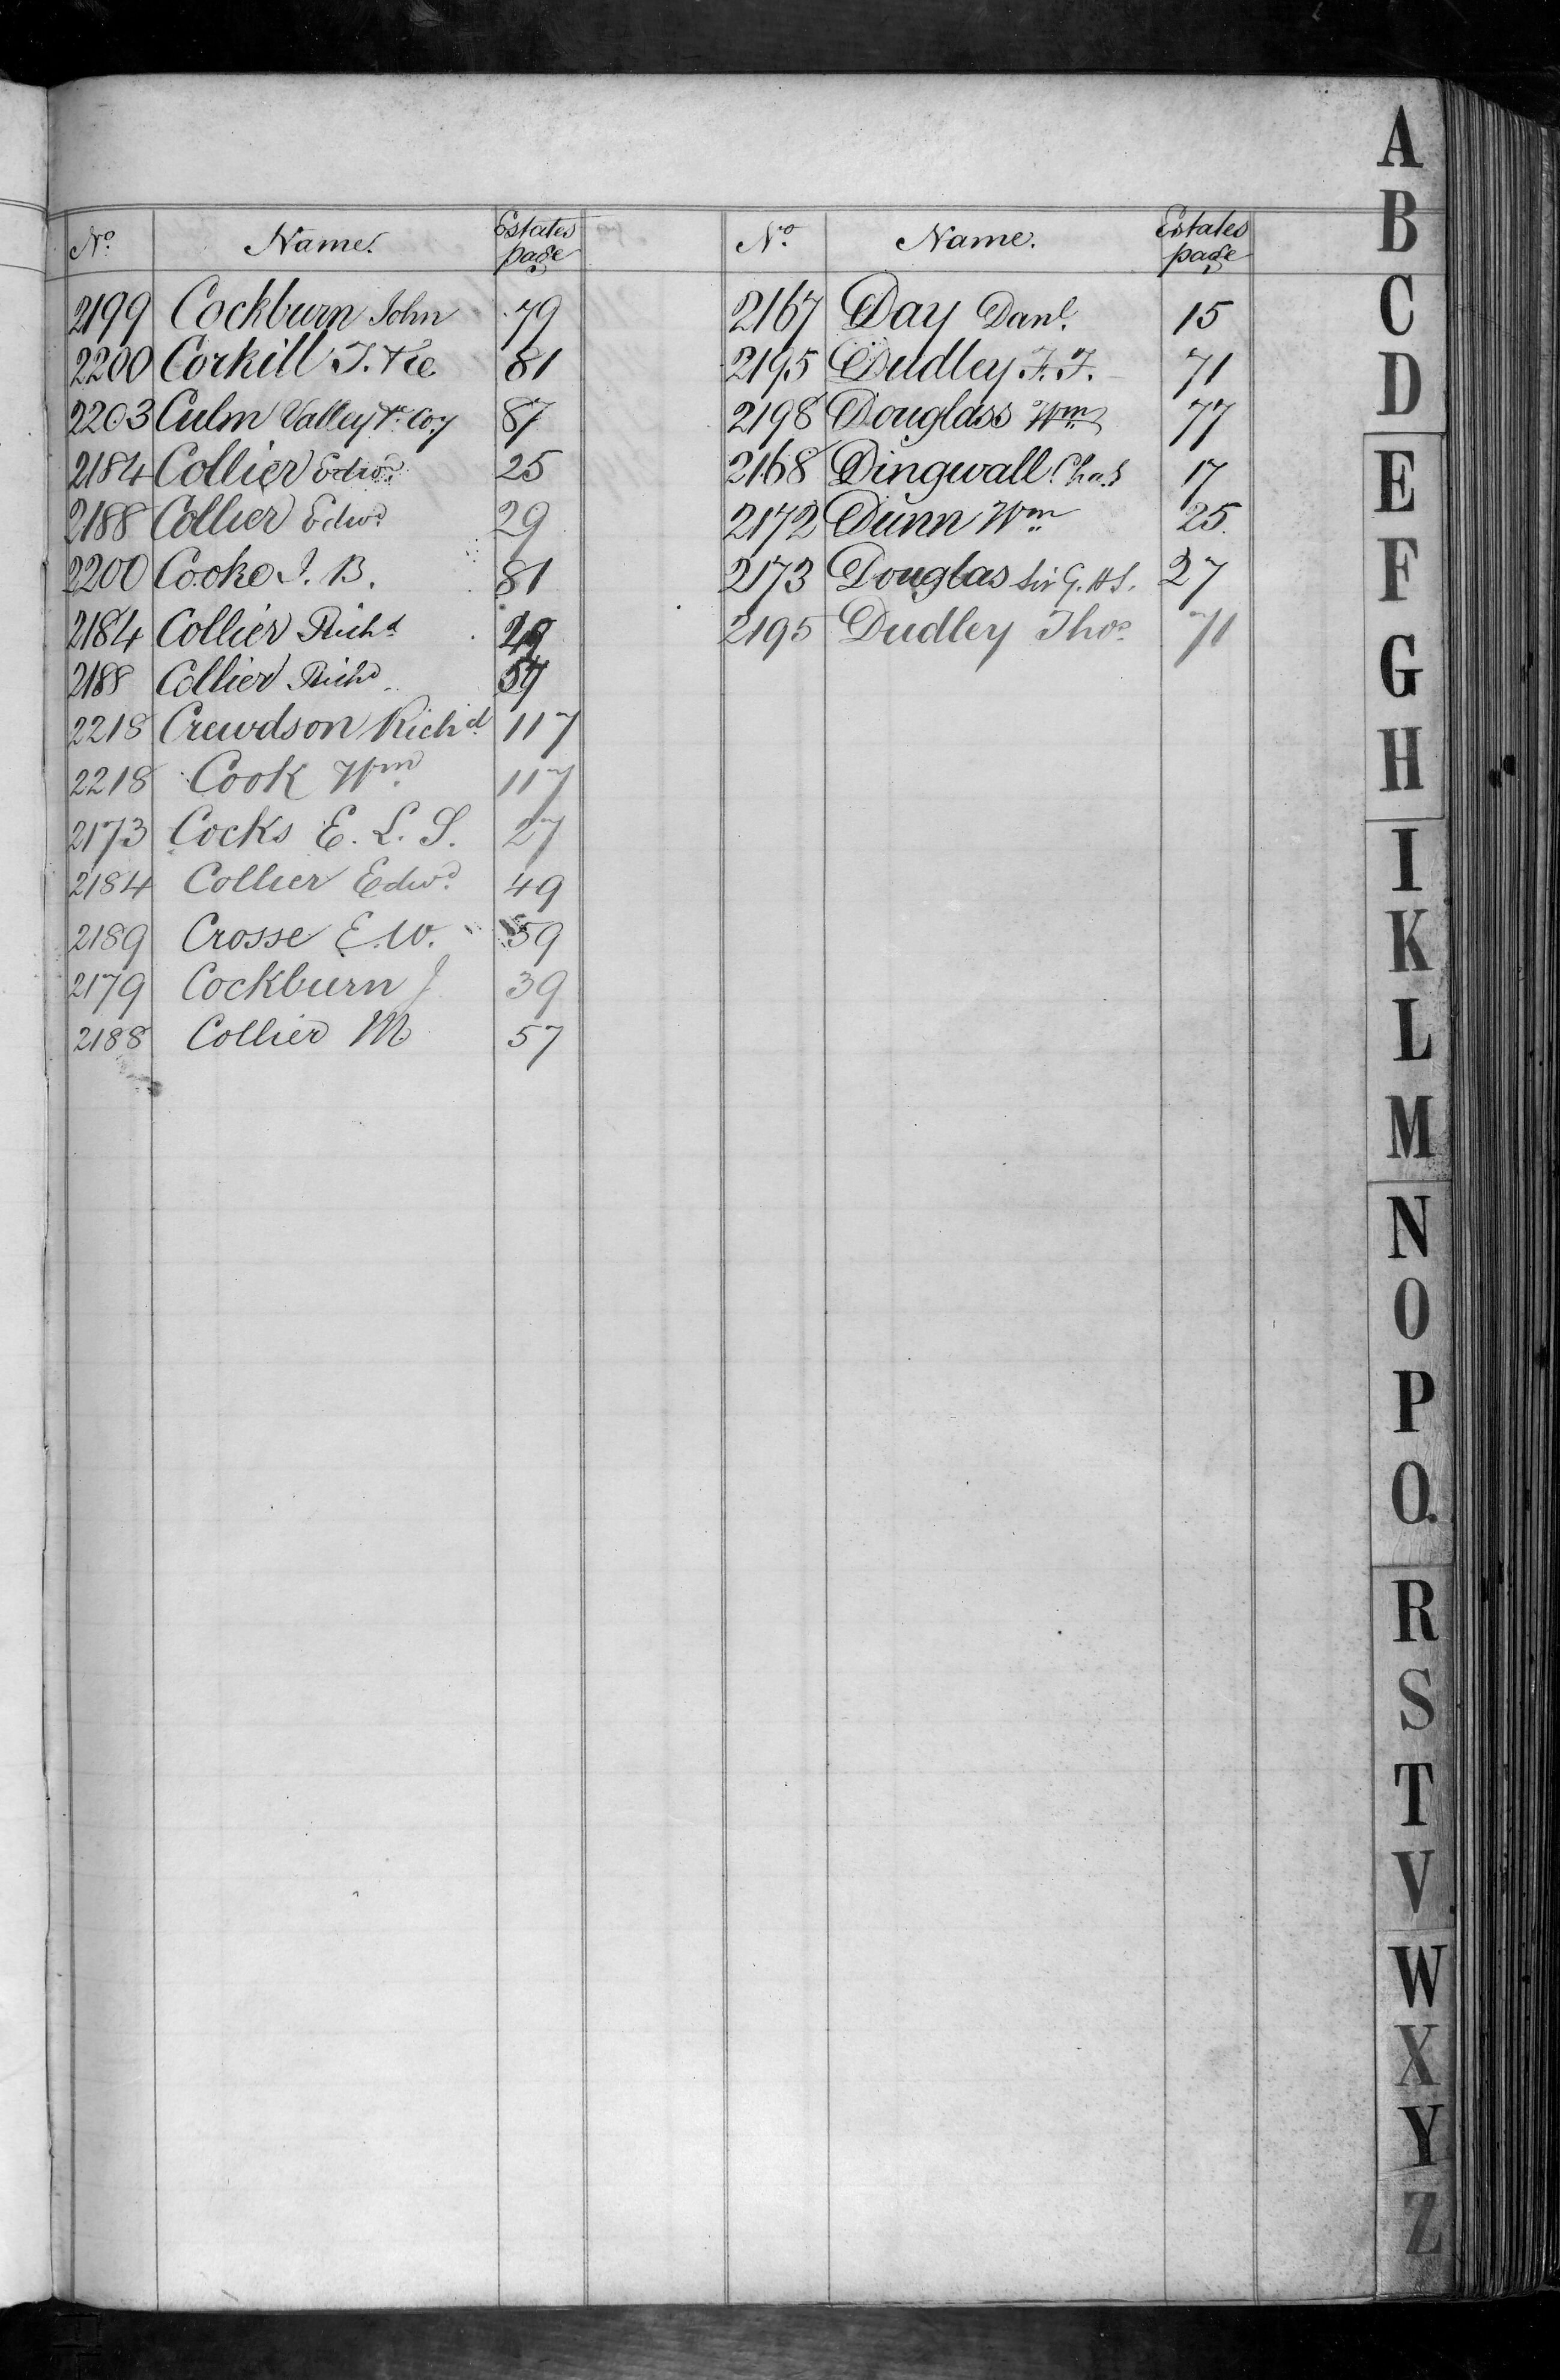 No. Name. Estates page
2199 Cockburn John 79
2200 Corkill T. & Co 81
2203 Culm Valley Coy 87
2184 Collier Edwd. 25
2188 Collier Edwd. 29
2200 Cooke J. B. 81
2184 Collier Richd
2188 Collier Richd 57
2218 Crewdson Richd. 117
2218 Cook Wm. 117
2173 Cocks E. L. S. 27
2184 Collier Edwd. 49
2189 Crosse E. W. 59
2179 Cockburn J 39
2188 Collier M 57
No. Name. Estates page
2167 Day Danl. 15
2195 Dudley F. F. 71
2198 Douglass Wm. 77
2168 Dingwall Chas 17
2172 Dunn Wm. 25
2173 Douglas Sir G. H. S. 27
2195 Dudley Thos. 71
A
B
C
D
E
F
G
H
I
K
L
M
N
O
P
Q.
R
S
T
V.
W
X
Y
Z